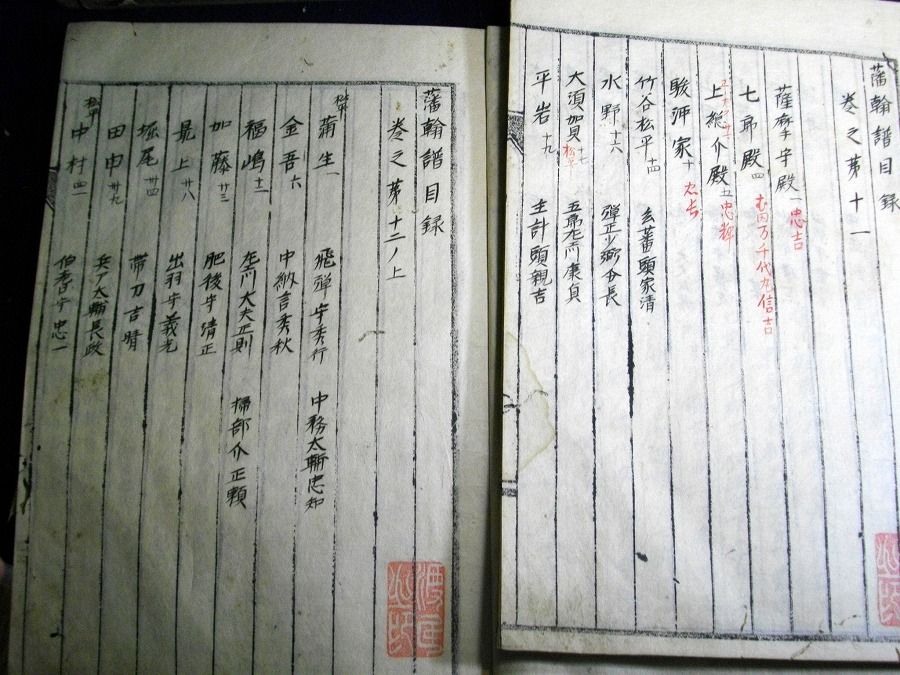 藩翰譜目録
巻之第十一
薩摩守殿一 忠吉
七郎殿四 む田万千代丸信吉
上総介殿五 忠輝
駿河家十 忠長
竹谷松平十四 玄蕃頭家清
水野十六 弾正少弼分長
大須加貝十七 松平 五郎左衛門康貞
平岩十九 主計頭親吉
藩翰譜目録
巻之第十二ノ上
松平 蒲生一 飛騨守秀行 中務太輔忠知
金吾六 中納言秀秋
福嶋十一 左衛門大夫正則 掃部介正頼
加藤廿三 肥後守清正
最上廿八 出羽守義光
堀尾卅四 帯刀吉晴
田中卅九 兵部太輔長政
松平 中村四一 伯耆守忠一